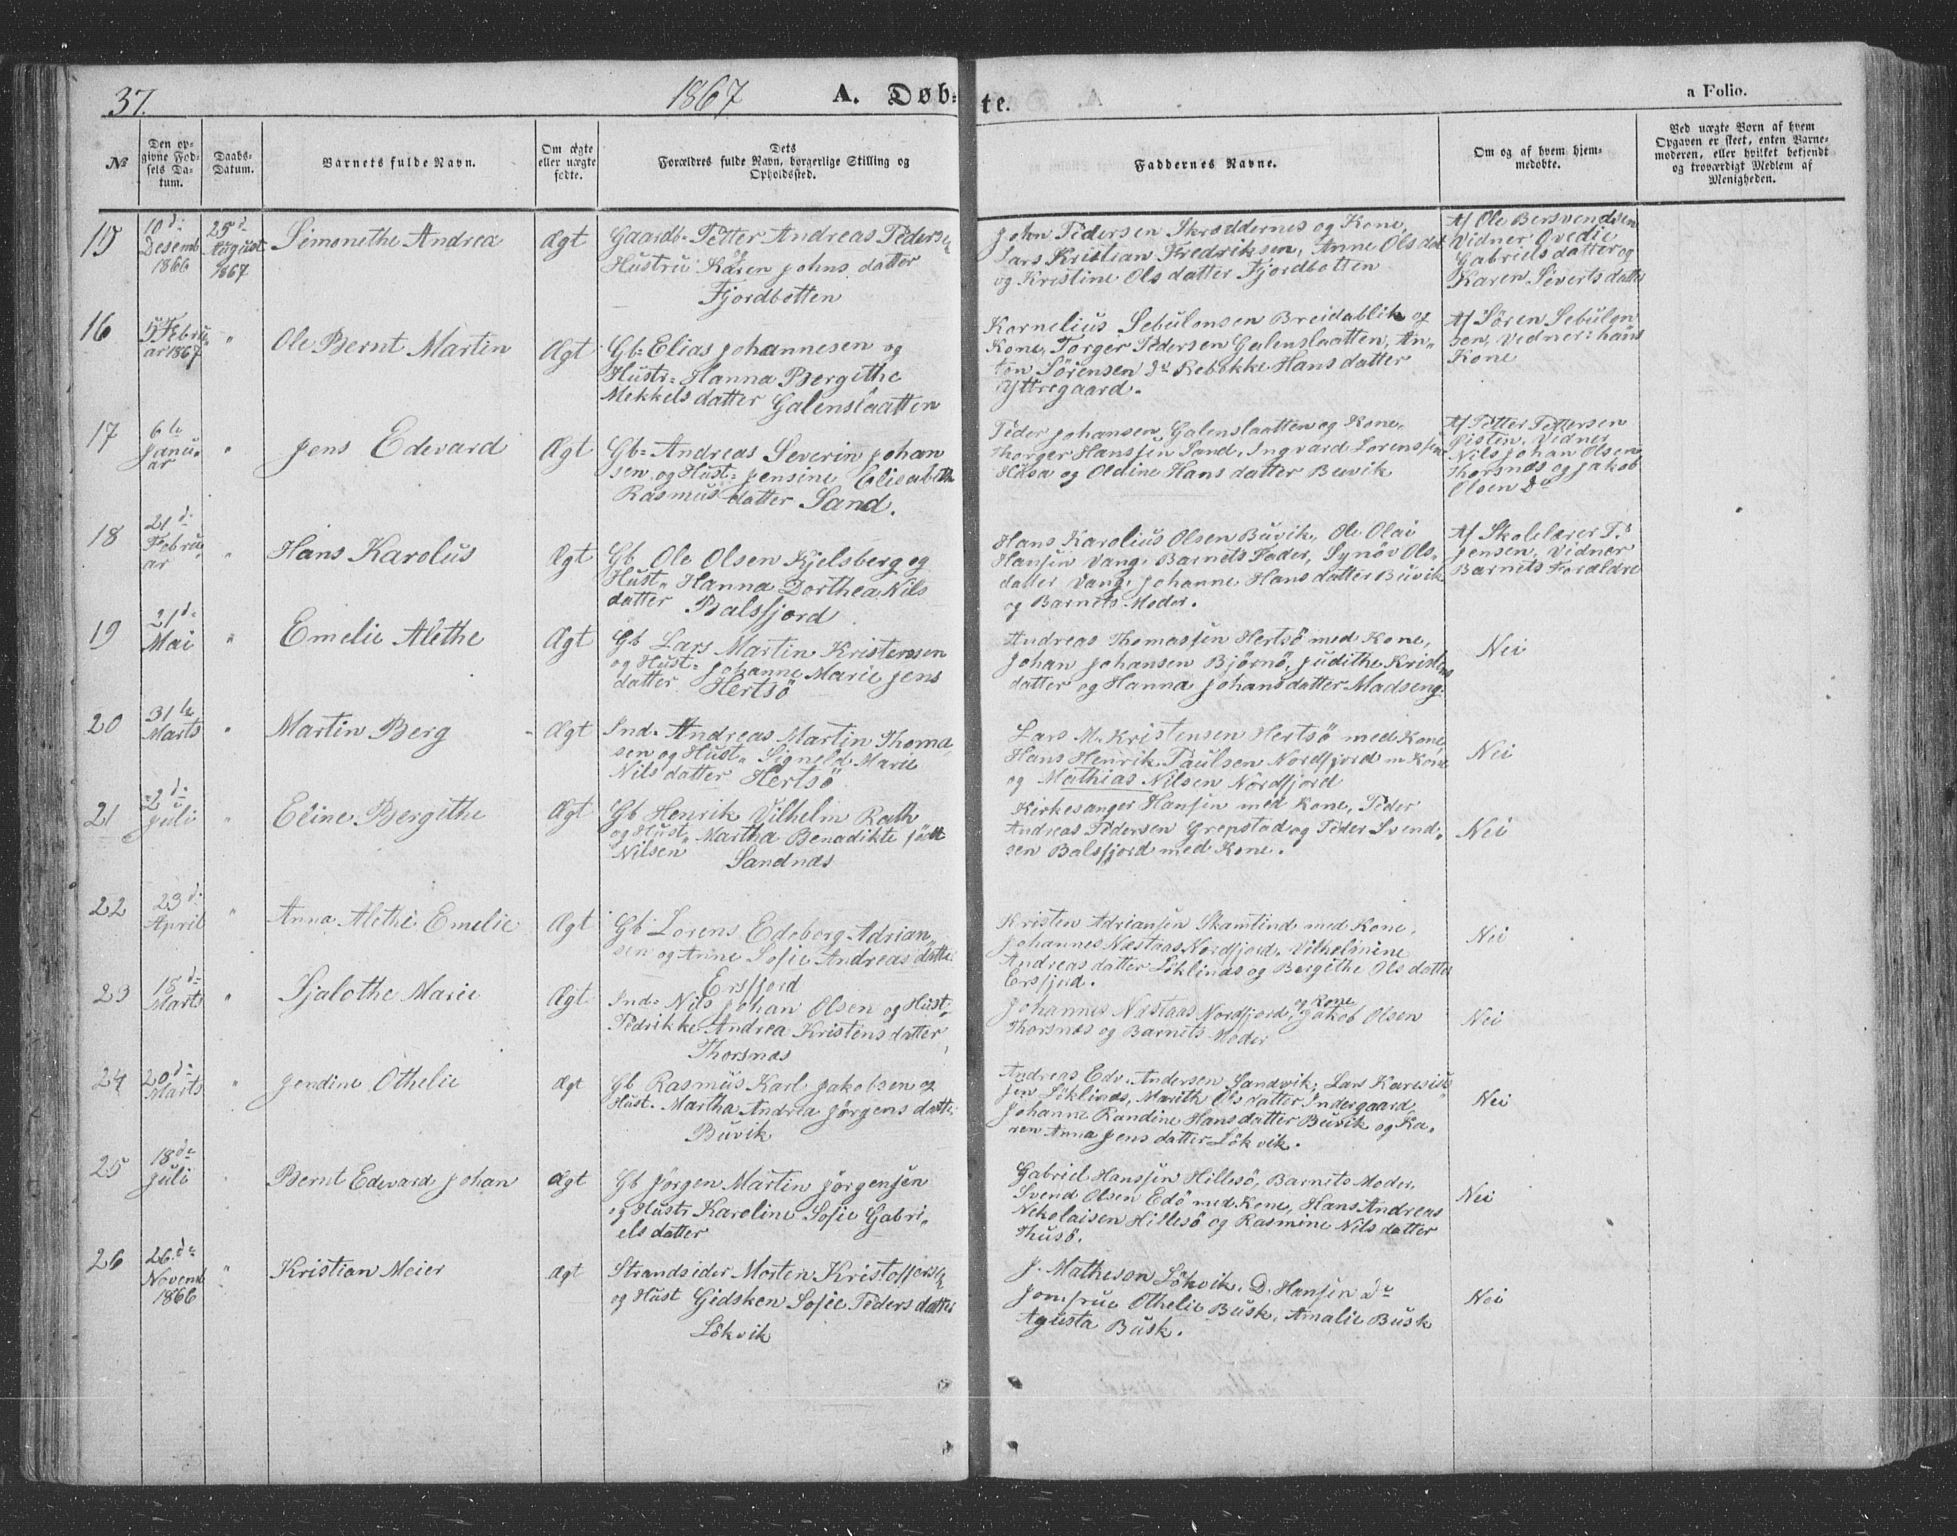 37.
1867
A. Døb-
te.
a Folio.
№
Den op-
givne Fød-
sels Da-
tum.
Daabs-
Datum.
Barnets fulde Navn.
Om ægte
eller uægte
fødte.
Dets
Forældres fulde Navn, borgerlige Stilling og
Opholdssted.
Faddernes Navne.
Om og af hvem hjem-
medøbte.
Ved uægte Børn af hvem
Opgaven er skeet, enten Barne-
moderen, eller hvilket bekjendt
og troværdigt Medlem af
Menigheden.
15
10d:
Desemb
1866
25d
August
1867
Simonethe Andrea
Ægt
Gaardb. Petter Andreas Pederse
Hustru Karen Johns datter
Fjordbotten
John Pedersen Skroddernes og Kone,
Lars Kristian Fredriksen, Anne Ols dat
og Kristine Ols datter Fjordbotten
Af Ole Bersvendsen
Vidner Ovedie
Gabriels datter og
Karen Severts datter
16
5 Febru
ar 1867
"
Ole Bernt Martin
Ægt
Gb: Elias Johannesen og
Hustr: Hanna Bergithe
Mekkels datter Galenslaatten
Kornelius Sebulonsen Breidablik og
Kone, Torger Pedersen Galenslaatten, An-
ton Sörensen do Rebekke Hans datter
Yttregaard.
Af Sören Sebulon
sen, Vidner: hans
Kone
17
6te
Janu
ar
"
Jens Edevard
Ægt
Gb: Andreas Severin Johan
sen og Hust: Jensine Elisabeth
Rasmus datter Sand.
Peder Johansen Galenslaatten og Kone,
Thorger Hanssen Sand, Ingvard Lorenssen
Hilsa og Oldine Hans datter Buvik
Af Petter Pettersen
Vidner
Nils Johan Olsen
Thorsnæs og Jakob
Olsen do
18
21d:
Febru
ar
"
Hans Karolus
Ægt
Gb. Ole Olsen Kjelsberg og
Hust" Hanna Dorthea Nils
datter Balsfjord
Hans Karolius Olsen Buvik, Ole Olai
Hansen Vang, Barnets Fader, Synöv Ols-
datter Vang, Johanne Hans datter Buvik
og Barnets Moder.
Af Skolelærer P.
Jensen, Vidner
Barnets Forældre
19
21d:
Mai
"
Emelie Alethe
Ægt
Gb Lars Martin Kristensen
og Hust: Johanne Marie Jens
datter Hertsö
Andreas Thomassen Hertsö med Kone,
Johan Johansen Björnö, Judithe Kristens
datter og Hanna Johans datter Madseng.
Nei
20
31te
Marts
"
Martin Berg
Ægt
Ind. Andreas Martin Thoma
sen og Hust" Signeld Marie
Nils datter Hertsö
Lars M. Kristensen Hertsö med Kone,
Hans Henrik Paulsen Nordfjord m Kone
og Mathias Nilsen Nordfjord
Nei
21
2d:
Juli
"
Eline Bergithe
Ægt
Gb Henrik Vilhelm Rath
og Hust" Martha Benadikte född
Nilsen Sandnæs
Kirkesanger Hansen med Kone, Peder
Andreas Pedersen Grepstad og Peder Svend-
sen Balsfjord med Kone.
Nei
22
23d:
April
"
Anna Alethe Emelie
Ægt
Gb Lorens Edeborg Adrian
sen og Anne Sofie Andreas datte
Ersfjord
Kristen Adriansen Skamtind med Kone,
Johannes Næstaas Nordfjord, Vilhelmine
Andreas datter Löklinds og Bergithe Ols datter
Ersfjord.
Nei
23
18de
Marts
"
Sjalothe Marie
Ægt
Ind. Nils Johan Olsen og Hust
Pedrikke Andrea Kristens datter,
Thorsnæs
Johannes Næstaas Nordfjord, og Kone Jakob Olsen
Thorsnæs og Barnets Moder
Nei
24
20de
Marts
"
Jendine Othelie
Ægt
Gb Rasmus Karl Jakobsen og
Hust. Martha Andrea Jörgens datte
Buvik
Andreas Edv. Andersen Sandvik, Lars
sen Löklinds, Marith Ols datter Indergaard,
Johanne Randine Hans datter Buvik og Ka-
ren Anna Jens datter Lökvik.
Nei
25
18de
Juli
"
Bernt Edevard Johan
Ægt
Gb Jörgen Martin Jörgensen
og Hustr Karoline Sofie Gabri-
els datter
Gabriel Hanssen Hillesö, Barnets Moder,
Svend Olsen Edö med Kone, Hans Andreas
Nikolaisen Hillesö og Rasmine Nils datter
Thusö.
Nei
26
26de
Novemb
1866
"
Kristian Meier
Ægt
Strandsider Morten Kristoffersen
og Hust Gidsken Sofie Peders datter
Lökvik
J. Matheson Lökvik, D. Hansen do
Jomfrue Othelie Busk, Amalie Busk
Agusta Busk.
Nei